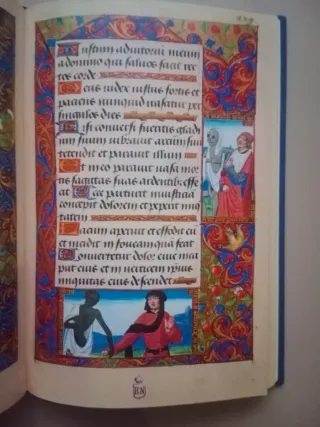 Iustum adiutoriu meum
a domino qui saluos facit rec
tos corde
Deus iudex iustus fortis et
paciens nunquid irascitur per
singulos dies
Nisi conuersi fueritis gladi
um suum vibrabit arcum suu
tetendit et parauit illum
Et in eo parauit vasa mor
tis sagittas suas ardentib; effe
cit Ecce parturiit iniusticia
concepit dolorem et peperit iniqui
tatem
Lacum aperuit et effodit eu
et incidit in foueam qua fecit
Conuertetur dolor eius in ca
put eius et in verticem ipius
iniquitas eius descendet
BN